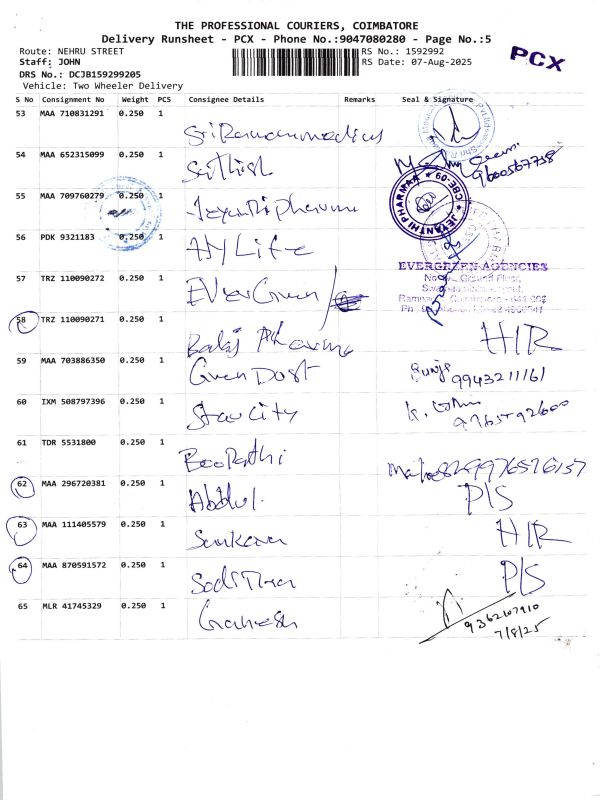 THE PROFESSIONAL COURIERS, COIMBATORE
Delivery Runsheet - PCX - Phone No.:9047080280 - Page No.:5
Route: NEHRU STREET RS No.: 1592992
Staff: JOHN RS Date: 07-Aug-2025
PCX
DRS No.: DCJB159299205
Vehicle: Two Wheeler Delivery
S No Consignment No Weight PCS Consignee Details Remarks Seal & Signature
53 MAA 710831291 0.250 1
SriRamanmedicus
54 MAA 652315099 0.250 1
Sathish
9600567758
55 MAA 709760279 0.250 1
Jeyanthi pharma
JEYANTHI PHARMAA CBE-09
56 PDK 9321183 0.250 1
HyLife
57 TRZ 110090272 0.250 1
EverGreen
EVERGREEN AGENCIES
58 TRZ 110090271 0.250 1
Balaj Pharma H/R
59 MAA 703886350 0.250 1
Green Dost 9943211161
60 IXM 508797396 0.250 1
Star City
61 TDR 5531800 0.250 1
BooPathi
62 MAA 296720381 0.250 1
Abdul. P/S
63 MAA 111405579 0.250 1
Sankara H/R
64 MAA 870591572 0.250 1
P/S
65 MLR 41745329 0.250 1
Ganesh 9362107910
7/8/25